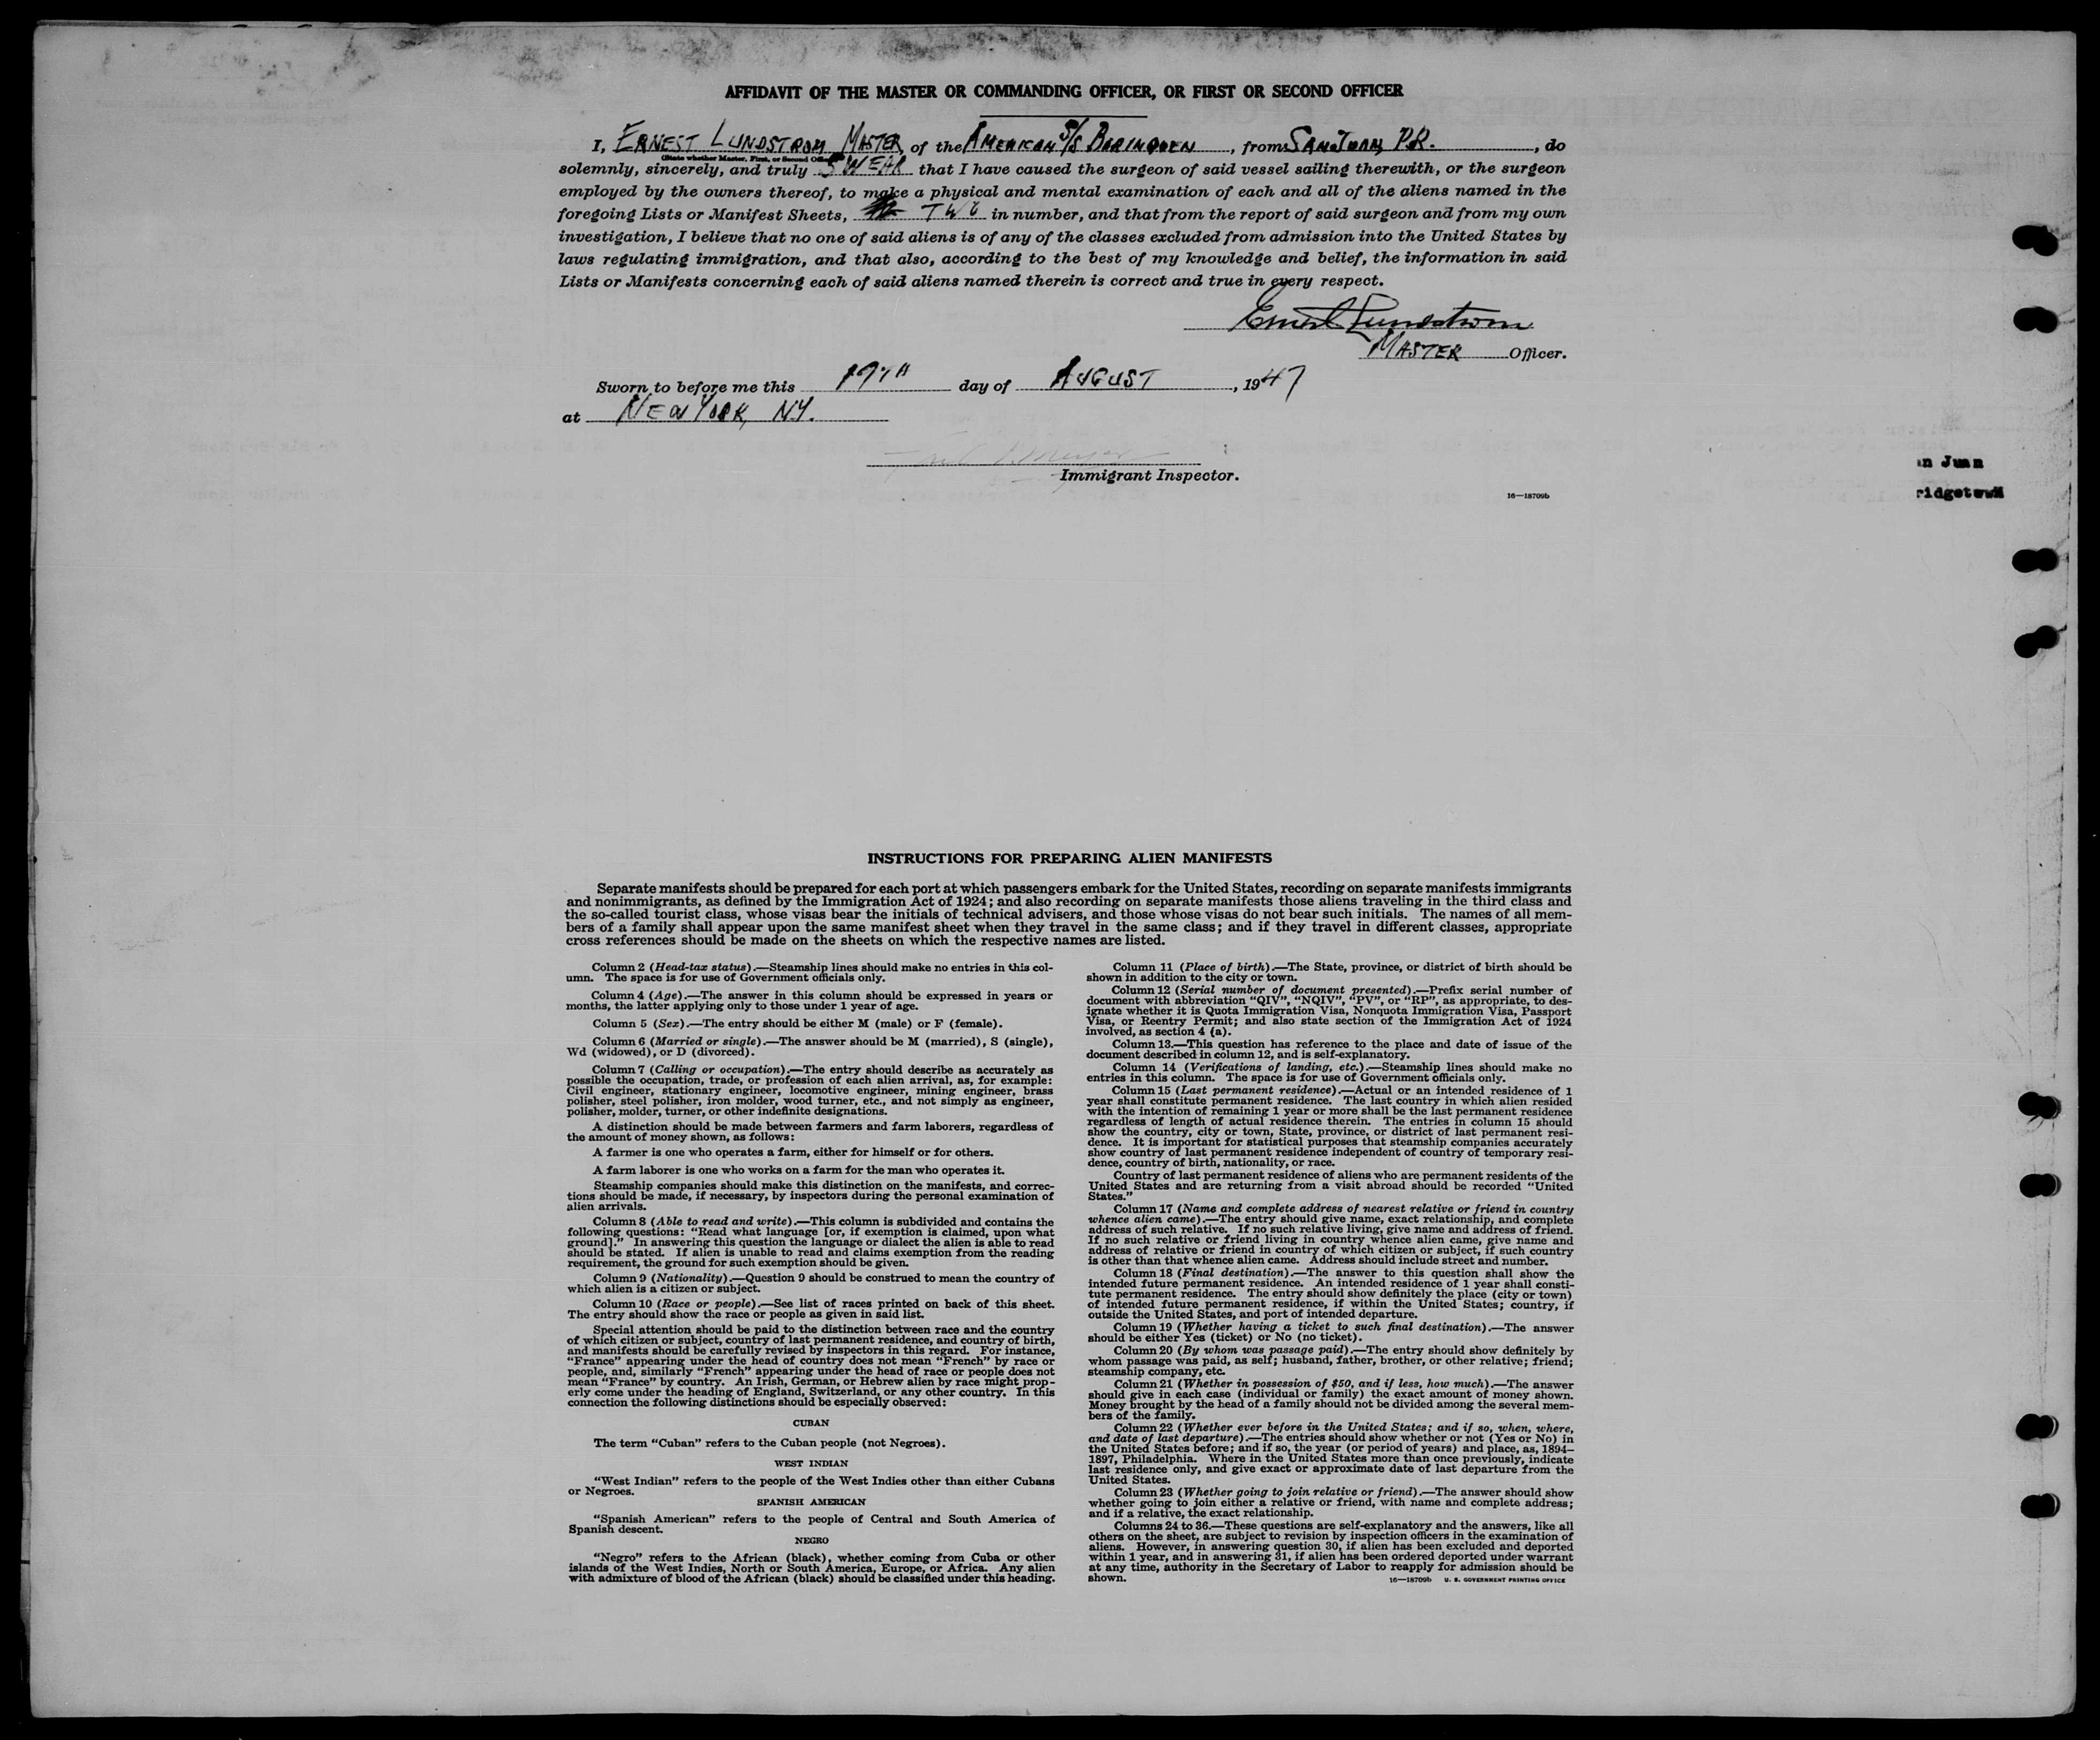 AFFIDAVIT OF THE MASTER OR COMMANDING OFFICER, OR FIRST OR SECOND OFFICER
I, ERNEST LUNDSTROM MASTER, of the AMERICAN S/S BORINQUEN, from SAN JUAN, P.R., do
(State whether Master, First, or Second Officer)
solemnly, sincerely, and truly SWEAR that I have caused the surgeon of said vessel sailing therewith, or the surgeon
employed by the owners thereof, to make a physical and mental examination of each and all of the aliens named in the
foregoing Lists or Manifest Sheets, TWO in number, and that from the report of said surgeon and from my own
investigation, I believe that no one of said aliens is of any of the classes excluded from admission into the United States by
laws regulating immigration, and that also, according to the best of my knowledge and belief, the information in said
Lists or Manifests concerning each of said aliens named therein is correct and true in every respect.
Ernest Lundstrom
MASTER Officer.
Sworn to before me this 19TH day of AUGUST, 1947
at NEW YORK, N.Y.
Immigrant Inspector.
16—18709b
n Juan
ridgetown
INSTRUCTIONS FOR PREPARING ALIEN MANIFESTS
Separate manifests should be prepared for each port at which passengers embark for the United States, recording on separate manifests immigrants
and nonimmigrants, as defined by the Immigration Act of 1924; and also recording on separate manifests those aliens traveling in the third class and
the so-called tourist class, whose visas bear the initials of technical advisers, and those whose visas do not bear such initials. The names of all mem-
bers of a family shall appear upon the same manifest sheet when they travel in the same class; and if they travel in different classes, appropriate
cross references should be made on the sheets on which the respective names are listed.
Column 2 (Head-tax status).—Steamship lines should make no entries in this col-
umn. The space is for use of Government officials only.
Column 4 (Age).—The answer in this column should be expressed in years or
months, the latter applying only to those under 1 year of age.
Column 5 (Sex).—The entry should be either M (male) or F (female).
Column 6 (Married or single).—The answer should be M (married), S (single),
Wd (widowed), or D (divorced).
Column 7 (Calling or occupation).—The entry should describe as accurately as
possible the occupation, trade, or profession of each alien arrival, as, for example:
Civil engineer, stationary engineer, locomotive engineer, mining engineer, brass
polisher, steel polisher, iron molder, wood turner, etc., and not simply as engineer,
polisher, molder, turner, or other indefinite designations.
A distinction should be made between farmers and farm laborers, regardless of
the amount of money shown, as follows:
A farmer is one who operates a farm, either for himself or for others.
A farm laborer is one who works on a farm for the man who operates it.
Steamship companies should make this distinction on the manifests, and correc-
tions should be made, if necessary, by inspectors during the personal examination of
alien arrivals.
Column 8 (Able to read and write).—This column is subdivided and contains the
following questions: “Read what language [or, if exemption is claimed, upon what
ground].” In answering this question the language or dialect the alien is able to read
should be stated. If alien is unable to read and claims exemption from the reading
requirement, the ground for such exemption should be given.
Column 9 (Nationality).—Question 9 should be construed to mean the country of
which alien is a citizen or subject.
Column 10 (Race or people).—See list of races printed on back of this sheet.
The entry should show the race or people as given in said list.
Special attention should be paid to the distinction between race and the country
of which citizen or subject, country of last permanent residence, and country of birth,
and manifests should be carefully revised by inspectors in this regard. For instance,
“France” appearing under the head of country does not mean “French” by race or
people, and, similarly “French” appearing under the head of race or people does not
mean “France” by country. An Irish, German, or Hebrew alien by race might prop-
erly come under the heading of England, Switzerland, or any other country. In this
connection the following distinctions should be especially observed:
CUBAN
The term “Cuban” refers to the Cuban people (not Negroes).
WEST INDIAN
“West Indian” refers to the people of the West Indies other than either Cubans
or Negroes.
SPANISH AMERICAN
“Spanish American” refers to the people of Central and South America of
Spanish descent.
NEGRO
“Negro” refers to the African (black), whether coming from Cuba or other
islands of the West Indies, North or South America, Europe, or Africa. Any alien
with admixture of blood of the African (black) should be classified under this heading.
Column 11 (Place of birth).—The State, province, or district of birth should be
shown in addition to the city or town.
Column 12 (Serial number of document presented).—Prefix serial number of
document with abbreviation “QIV”, “NQIV”, “PV”, or “RP”, as appropriate, to des-
ignate whether it is Quota Immigration Visa, Nonquota Immigration Visa, Passport
Visa, or Reentry Permit; and also state section of the Immigration Act of 1924
involved, as section 4 (a).
Column 13.—This question has reference to the place and date of issue of the
document described in column 12, and is self-explanatory.
Column 14 (Verifications of landing, etc.).—Steamship lines should make no
entries in this column. The space is for use of Government officials only.
Column 15 (Last permanent residence).—Actual or an intended residence of 1
year shall constitute permanent residence. The last country in which alien resided
with the intention of remaining 1 year or more shall be the last permanent residence
regardless of length of actual residence therein. The entries in column 15 should
show the country, city or town, State, province, or district of last permanent resi-
dence. It is important for statistical purposes that steamship companies accurately
show country of last permanent residence independent of country of temporary resi-
dence, country of birth, nationality, or race.
Country of last permanent residence of aliens who are permanent residents of the
United States and are returning from a visit abroad should be recorded “United
States.”
Column 17 (Name and complete address of nearest relative or friend in country
whence alien came).—The entry should give name, exact relationship, and complete
address of such relative. If no such relative living, give name and address of friend.
If no such relative or friend living in country whence alien came, give name and
address of relative or friend in country of which citizen or subject, if such country
is other than that whence alien came. Address should include street and number.
Column 18 (Final destination).—The answer to this question shall show the
intended future permanent residence. An intended residence of 1 year shall consti-
tute permanent residence. The entry should show definitely the place (city or town)
of intended future permanent residence, if within the United States; country, if
outside the United States, and port of intended departure.
Column 19 (Whether having a ticket to such final destination).—The answer
should be either Yes (ticket) or No (no ticket).
Column 20 (By whom was passage paid).—The entry should show definitely by
whom passage was paid, as self; husband, father, brother, or other relative; friend;
steamship company, etc.
Column 21 (Whether in possession of $50, and if less, how much).—The answer
should give in each case (individual or family) the exact amount of money shown.
Money brought by the head of a family should not be divided among the several mem-
bers of the family.
Column 22 (Whether ever before in the United States; and if so, when, where,
and date of last departure).—The entries should show whether or not (Yes or No) in
the United States before; and if so, the year (or period of years) and place, as, 1894–
1897, Philadelphia. Where in the United States more than once previously, indicate
last residence only, and give exact or approximate date of last departure from the
United States.
Column 23 (Whether going to join relative or friend).—The answer should show
whether going to join either a relative or friend, with name and complete address;
and if a relative, the exact relationship.
Columns 24 to 36.—These questions are self-explanatory and the answers, like all
others on the sheet, are subject to revision by inspection officers in the examination of
aliens. However, in answering question 30, if alien has been excluded and deported
within 1 year, and in answering 31, if alien has been ordered deported under warrant
at any time, authority in the Secretary of Labor to reapply for admission should be
shown.
16—18709b U. S. GOVERNMENT PRINTING OFFICE